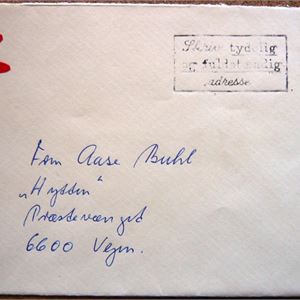 Skriv tydelig
og fuldstændig
adresse
Fem Aase Buhl
"Hytten"
Præstevænget
6600 Vejen.